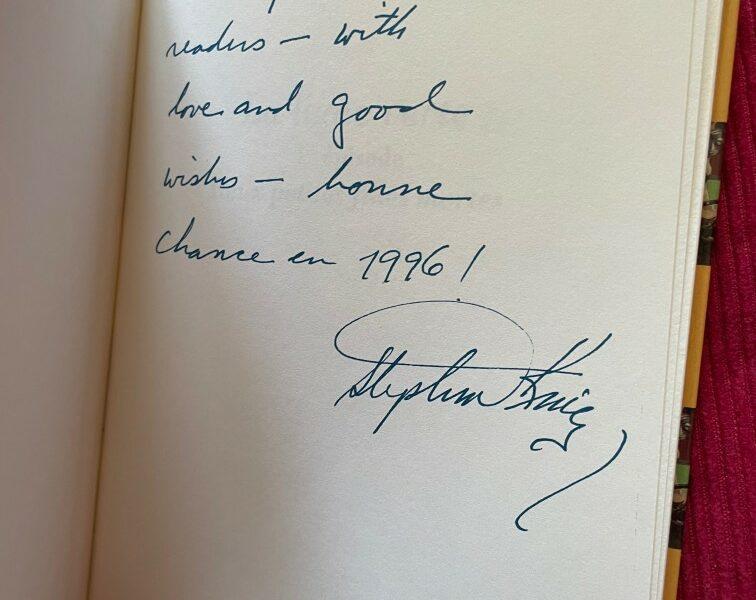 readers — with
love and good
wishes — bonne
chance en 1996!
Stephen King